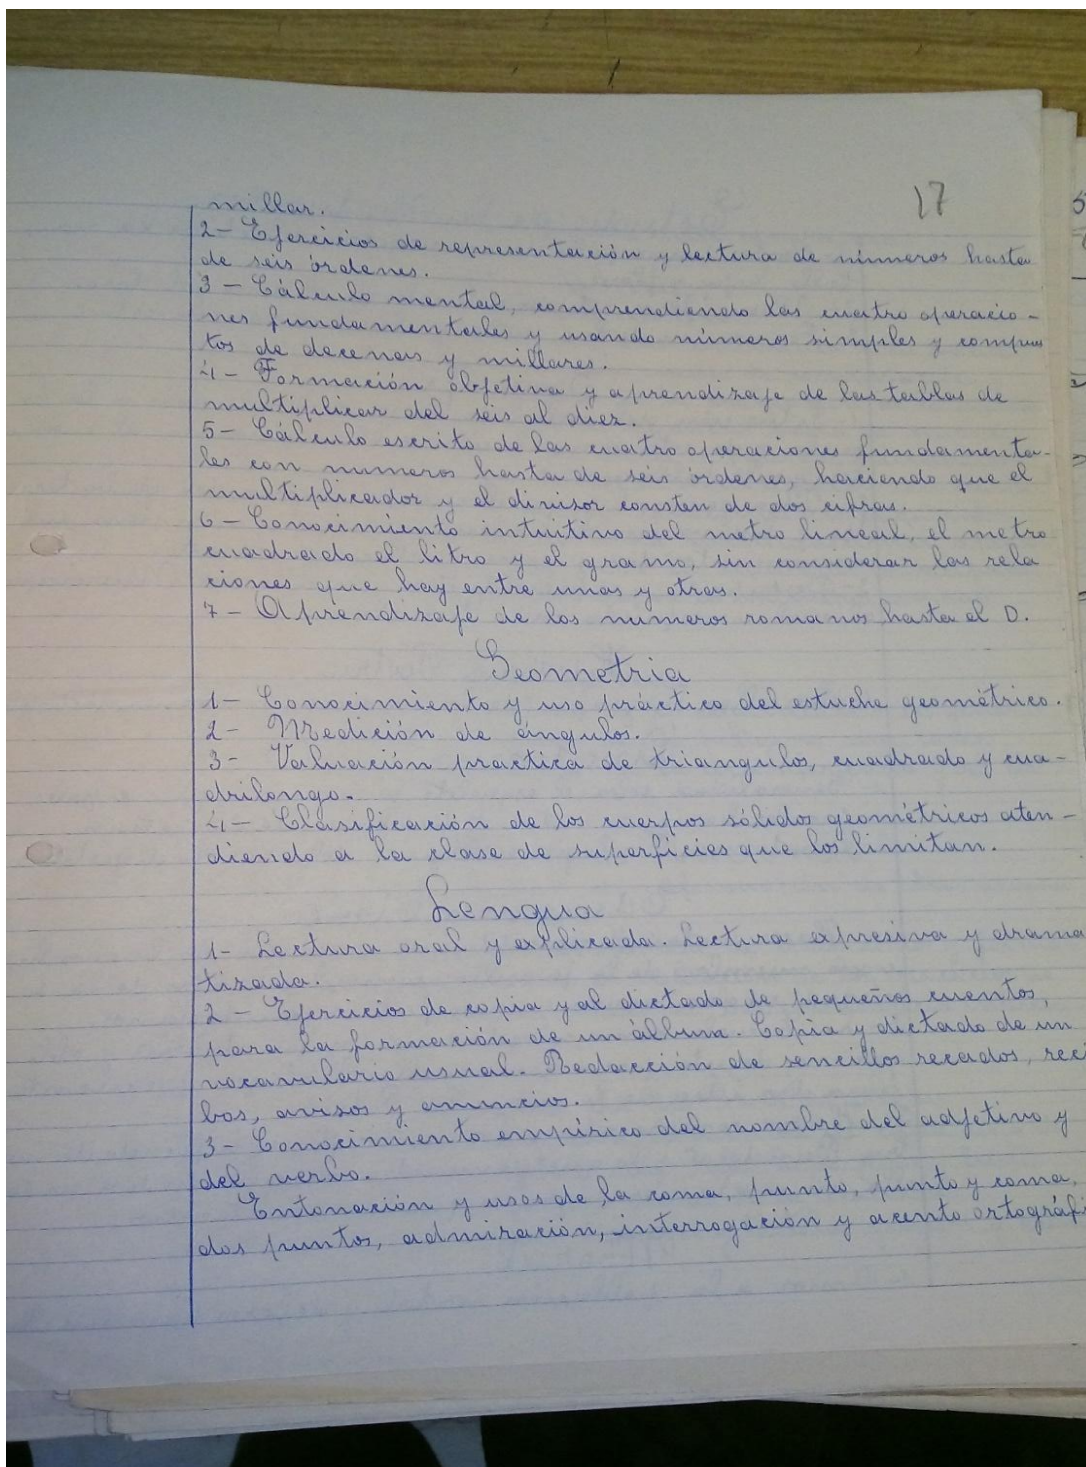 17
millar.
2- Ejercicios de representación y lectura de números hasta
de seis órdenes.
3- Cálculo mental, comprendiendo las cuatro operacio-
nes fundamentales y usando números simples y compues
tos de decenas y millares.
4- Formación objetiva y aprendizaje de las tablas de
multiplicar del seis al diez.
5- Cálculo escrito de las cuatro operaciones fundamenta-
les con numeros hasta de seis órdenes, haciendo que el
multiplicador y el divisor consten de dos cifras.
6- Conocimiento intuitivo del metro lineal, el metro
cuadrado el litro y el gramo, sin considerar las rela
ciones que hay entre unas y otras.
7- Aprendizaje de los numeros romanos hasta el D.
Geometria
1- Conocimiento y uso práctico del estuche geométrico.
2- Medición de ángulos.
3- Valuación practica de triangulos, cuadrado y cua-
drilongo.
4- Clasificación de los cuerpos sólidos geométricos aten-
diendo a la clase de superficies que los limitan.
Lengua
1- Lectura oral y explicada. Lectura expresiva y drama
tizada.
2- Ejercicios de copia y al dictado de pequeños cuentos,
para la formación de un álbum. Copia y dictado de un
vocavulario usual. Redacción de sencillos recados, reci
bos, avisos y anuncios.
3- Conocimiento empírico del nombre del adjetivo y
del verbo.
Entonación y usos de la coma, punto, punto y coma,
dos puntos, admiración, interrogación y acento ortográfi